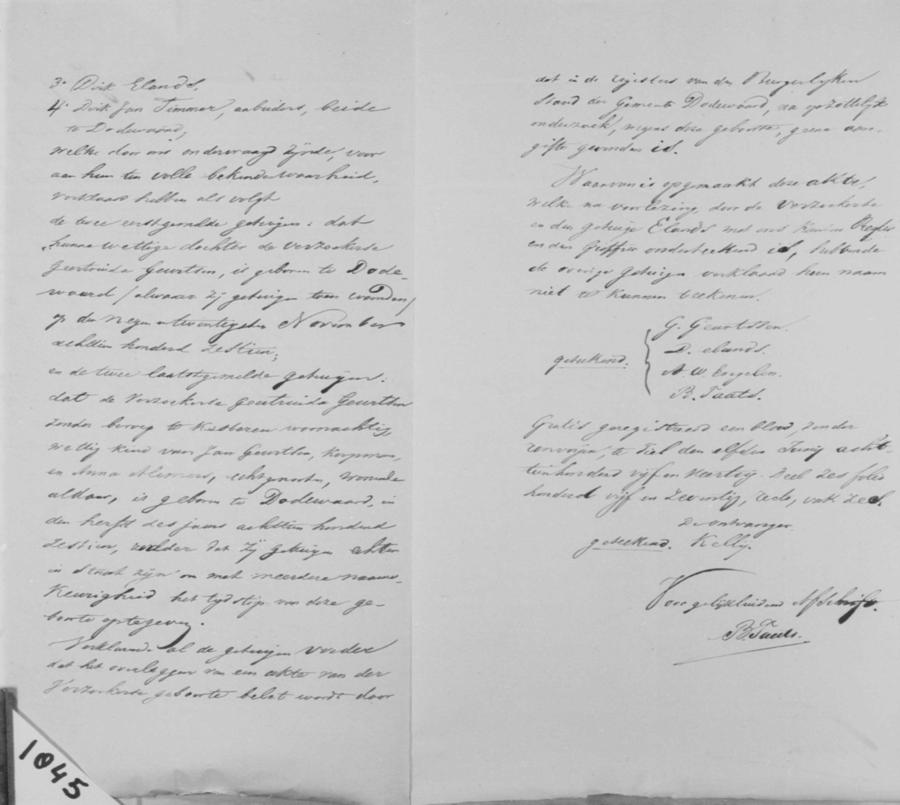 3° Dirk Elands,
4° Dirk Jan Timmer, arbeiders, beide
te Dodewaard,
welke door ons ondervraagd zijnde, voor
aan hun ten volle bekende waarheid,
verklaard hebben als volgt
de twee eerstgemelde getuigen: dat
hunne wettige dochter de verzoekerste
Geertruida Geurtsen, is geboren te Dode-
waard / alwaar zij getuigen toen woonden /
op den negen en twentigsten November
achttien honderd zestien;
en de twee laatstgemelde getuigen:
dat de Verzoekerste Geertruida Geurtsen
zonder beroep te Kesteren woonachtig
wettig kind van Jan Geurtsen, koopman,
en Anna echtgenooten, wonende
aldaar, is geboren te Dodewaard, in
den herfst des jaars achttien honderd
zestien, zonder dat zij getuigen echter
in staat zijn om met meerdere naauw-
keurigheid het tydstip van deze ge-
boorte optegeven.
Verklarende al de getuigen verder
dat het overleggen van een akte van der
Verzoekerste geboorte belet wordt door
dat in de registers van den Burgerlyken
Stand der Gemeente Dodewaard, na opzettelijk
onderzoek, wegens deze geboorte, geene aan-
gifte gevonden is.
Waarvan is opgemaakt deze akte,
welke na voorlezing, door de verzoekerste
en den getuige Elands met ons Kanton Regter
en den Griffier onderteekend is, hebbende
de overige getuigen verklaard hun naam
niet te kunnen teekenen.
geteekend. G. Geurtsen.
D. elands.
A. W. Engelen.
B. Taats.
Gratis geregistreerd een blad, zonder
renvooijen, te Tiel den elfden Junij acht-
tienhonderd vijf en veertig. Deel zes folio
honderd vijf en zeventig, recto, vak zes.
De ontvanger.
geteekend. Kelly.
Voor gelijkluidend Afschrift.
B. Taats.
1045